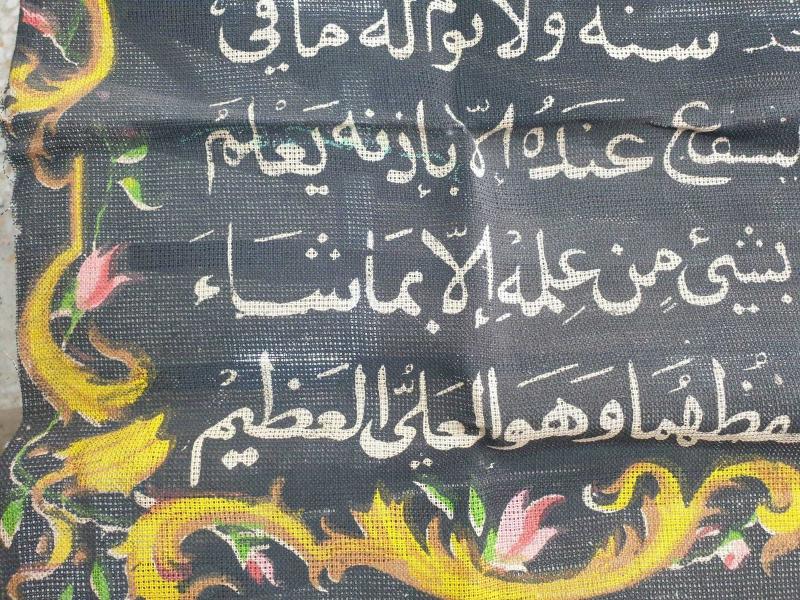 سنه ولا نوم له ما في
يشفع عنده إلّا بإذنه يَعْلمُ
بشئ من علمه إلّا بما شَاء
حفظهما وهو العلىُّ العَظيمُ